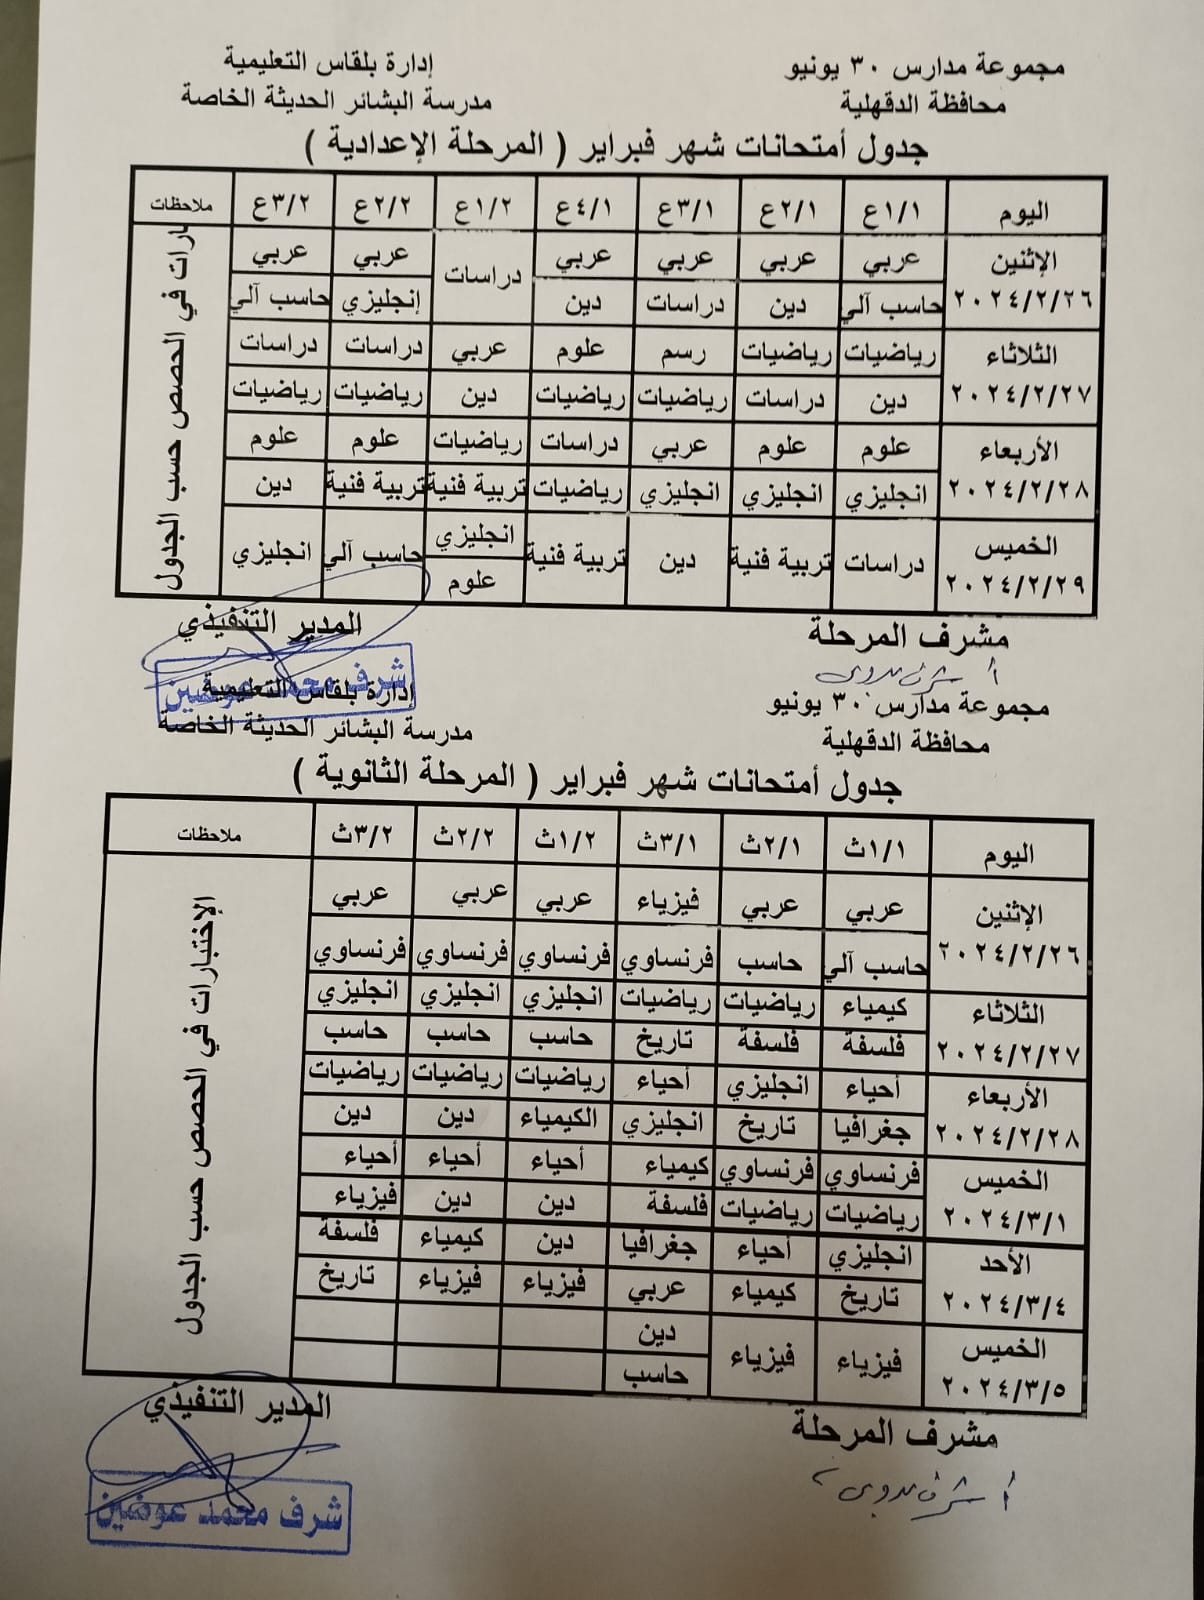 مجموعة مدارس ٣٠ يونيو إدارة بلقاس التعليمية
محافظة الدقهلية مدرسة البشائر الحديثة الخاصة
جدول أمتحانات شهر فبراير ( المرحلة الإعدادية )
اليوم ١/١ع ٢/١ع ٣/١ع ٤/١ع ١/٢ع ٢/٢ع ٣/٢ع ملاحظات
الإثنين ٢٠٢٤/٢/٢٦ عربي عربي عربي عربي دراسات عربي عربي
حاسب آلي دين دراسات دين إنجليزي حاسب آلي
الثلاثاء ٢٠٢٤/٢/٢٧ رياضيات رياضيات رسم علوم عربي دراسات دراسات
دين دراسات رياضيات رياضيات دين رياضيات رياضيات
الأربعاء ٢٠٢٤/٢/٢٨ علوم علوم عربي دراسات رياضيات علوم علوم
انجليزي انجليزي انجليزي رياضيات تربية فنية تربية فنية دين
الخميس ٢٠٢٤/٢/٢٩ دراسات تربية فنية دين تربية فنية انجليزي حاسب آلي انجليزي
علوم
بارات في الحصص حسب الجدول
مشرف المرحلة المدير التنفيذي
شرف محمد عوضين
مجموعة مدارس ٣٠ يونيو إدارة بلقاس التعليمية
محافظة الدقهلية مدرسة البشائر الحديثة الخاصة
جدول أمتحانات شهر فبراير ( المرحلة الثانوية )
اليوم ١/١ث ٢/١ث ٣/١ث ١/٢ث ٢/٢ث ٣/٢ث ملاحظات
الإثنين ٢٠٢٤/٢/٢٦ عربي عربي فيزياء عربي عربي عربي
حاسب آلي حاسب فرنساوي فرنساوي فرنساوي فرنساوي
الثلاثاء ٢٠٢٤/٢/٢٧ كيمياء رياضيات رياضيات انجليزي انجليزي انجليزي
فلسفة فلسفة تاريخ حاسب حاسب حاسب
الأربعاء ٢٠٢٤/٢/٢٨ أحياء انجليزي أحياء رياضيات رياضيات رياضيات
جغرافيا تاريخ انجليزي الكيمياء دين دين
الخميس ٢٠٢٤/٣/١ فرنساوي فرنساوي كيمياء أحياء أحياء أحياء
رياضيات رياضيات فلسفة دين دين فيزياء
الأحد ٢٠٢٤/٣/٤ انجليزي أحياء جغرافيا دين كيمياء فلسفة
تاريخ كيمياء عربي فيزياء فيزياء تاريخ
الخميس ٢٠٢٤/٣/٥ فيزياء فيزياء دين
حاسب
الإختبارات في الحصص حسب الجدول
مشرف المرحلة المدير التنفيذي
شرف محمد عوضين